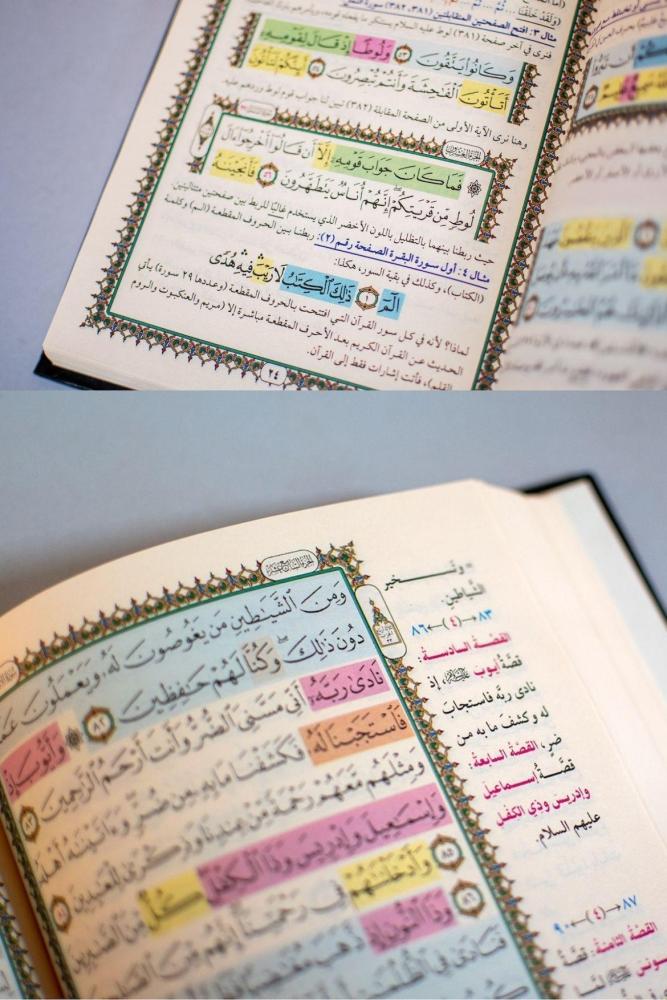 مثال ٣: افتح الصفحتين المتقابلتين (٣٨١، ٣٨٢) سورة النمل
فترى في آخر صفحة (٣٨١) لوط عليه السلام يستنكر ما يفعله قومه
وَكَانُوا۟ يَتَّقُونَ ٥٣ وَلُوطًا إِذْ قَالَ لِقَوْمِهِۦٓ
أَتَأْتُونَ ٱلْفَـٰحِشَةَ وَأَنتُمْ تُبْصِرُونَ ٥٤ أَئِنَّكُمْ لَتَأْتُونَ
وهنا ترى الآية الأولى من الصفحة المقابلة (٣٨٢) تبين لنا جواب قوم لوط وردهم عليه
الجزء العشرون
فَمَا كَانَ جَوَابَ قَوْمِهِۦٓ إِلَّآ أَن قَالُوٓا۟ أَخْرِجُوٓا۟ ءَالَ
لُوطٍ مِّن قَرْيَتِكُمْ إِنَّهُمْ أُنَاسٌ يَتَطَهَّرُونَ ٥٦ فَأَنجَيْنَـٰهُ
حيث ربطنا بينهما بالتظليل باللون الأخضر الذي يستخدم غالبًا للربط بين صفحتين متتاليتين
مثال ٤: أول سورة البقرة الصفحة رقم (٢): ربطنا بين الحروف المقطعة (الم) وكلمة
(الكتاب)، وكذلك في بقية السور، هكذا:
الٓمٓ ١ ذَٰلِكَ ٱلْكِتَـٰبُ لَا رَيْبَ فِيهِ هُدًى
لماذا؟ لأنه في كل سور القرآن التي افتتحت بالحروف المقطعة (وعددها ٢٩ سورة) يأتي
الحديث عن القرآن الكريم بعد الأحرف المقطعة مباشرة إلا (مريم والعنكبوت والروم
القلم)، فأتت إشارات فقط إلى القرآن.
٢٤
الجزء السابع عشر
وَمِنَ ٱلشَّيَـٰطِينِ مَن يَغُوصُونَ لَهُۥ وَيَعْمَلُونَ
دُونَ ذَٰلِكَ وَكُنَّا لَهُمْ حَـٰفِظِينَ ٨٢ وَأَيُّوبَ إِذْ
نَادَىٰ رَبَّهُۥٓ أَنِّى مَسَّنِىَ ٱلضُّرُّ وَأَنتَ أَرْحَمُ ٱلرَّٰحِمِينَ ٨٣
فَٱسْتَجَبْنَا لَهُۥ فَكَشَفْنَا مَا بِهِۦ مِن ضُرٍّ وَءَاتَيْنَـٰهُ أَهْلَهُۥ
وَمِثْلَهُم مَّعَهُمْ رَحْمَةً مِّنْ عِندِنَا وَذِكْرَىٰ لِلْعَـٰبِدِينَ ٨٤
وَإِسْمَـٰعِيلَ وَإِدْرِيسَ وَذَا ٱلْكِفْلِ كُلٌّ مِّنَ ٱلصَّـٰبِرِينَ
٨٥ وَأَدْخَلْنَـٰهُمْ فِى رَحْمَتِنَآ إِنَّهُم مِّنَ
٨٦ وَذَا ٱلنُّونِ إِذ ذَّهَبَ مُغَـٰضِبًا
فَنَادَىٰ فِى ٱلظُّلُمَـٰتِ
وتسخير
الشياطين.
٨٣←(٤)→٨٦
القصة السادسة:
قصة أيوب عليه السلام، إذ
نادى ربه فاستجاب
له وكشف ما به من
ضر، القصة السابعة:
قصة إسماعيل
وإدريس وذي الكفل
عليهم السلام.
٨٧←(٤)→٩٠
القصة الثامنة: قصة